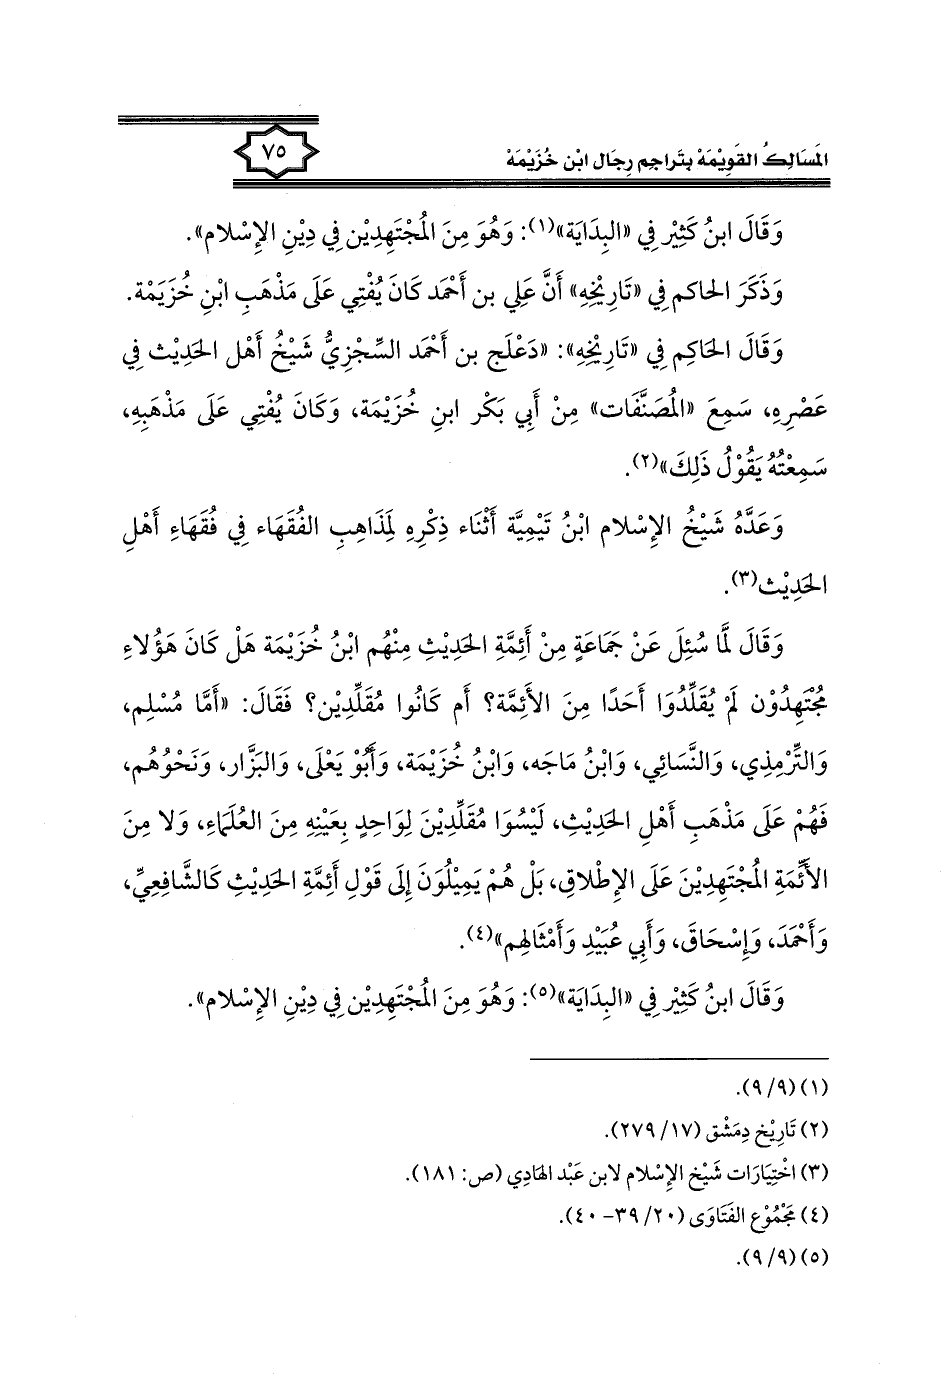 المَسَالِكُ القَوِيْمَةْ بِتَراجِم رِجَال ابْن خُزَيْمَةْ
٧٥
وَقَالَ ابنُ كَثِيْر فِي «البِدَايَة»(١): وَهُوَ مِنَ المُجْتَهِدِيْن فِي دِيْنِ الإِسْلام».
وَذَكَرَ الحاكم فِي «تَارِيْخِهِ» أَنَّ عَلِي بن أَحْمَد كَانَ يُفْتِي عَلَى مَذْهَبِ ابْنِ خُزَيْمْة.
وَقَالَ الحَاكِم فِي «تَارِيْخِهِ»: «دَعْلَج بن أَحْمَد السِّجْزِيُّ شَيْخُ أَهْل الحَدِيْث فِي
عَصْرِهِ، سَمِعَ «المُصَنَّفَات» مِنْ أَبِي بَكْر ابنِ خُزَيْمَة، وَكَانَ يُفْتِي عَلَى مَذْهَبِهِ،
سَمِعْتُهُ يَقُوْلُ ذَلِكَ»(٢).
وَعَدَّهُ شَيْخُ الإِسْلام ابْنُ تَيْمِيَّة أَثْنَاء ذِكْرِهِ لِمَذَاهِبِ الفُقَهَاء فِي فُقَهَاءِ أَهْلِ
الحَدِيْث(٣).
وَقَالَ لمَّا سُئِلَ عَنْ جَمَاعَةٍ مِنْ أَئِمَّة الحَدِيْثِ مِنْهُم ابْنُ خُزَيْمَة هَلْ كَانَ هَؤُلاءِ
مُجْتَهِدُوْن لَمْ يُقَلِّدُوَا أَحَدًا مِنَ الأَئِمَّة؟ أم كَانُوا مُقَلِّدِيْن؟ فَقَالَ: «أَمَّا مُسْلِم،
وَالتِّرْمِذِي، وَالنَّسَائِي، وَابْنُ مَاجَه، وَابْنُ خُزَيْمَة، وَأَبُوْ يَعْلَى، وَالبَزَّار، وَنَحْوُهُم،
فَهُمْ عَلَى مَذْهَبِ أَهْلِ الحَدِيْثِ، لَيْسُوَا مُقَلِّدِيْنَ لِوَاحِدٍ بِعَيْنِهِ مِنَ العُلَمَاءِ، وَلا مِنَ
الأَئِّمَةِ المُجْتَهِدِيْنَ عَلَى الإِطْلاقِ، بَلْ هُمْ يَمِيْلُوْنَ إِلَى قَوْلِ أَئِمَّةِ الحَدِيْثِ كَالشَّافِعِيِّ،
وَأَحْمَدَ، وَإِسْحَاقَ، وَأَبِي عُبَيْدٍ وَأَمْثَالِهِم»(٤).
وَقَالَ ابنُ كَثِيْر فِي «البِدَايَة»(٥): وَهُوَ مِنَ المُجْتَهِدِيْن فِي دِيْنِ الإِسْلام».
(١) (٩/٩).
(٢) تَارِيْخ دِمَشْق (١٧/ ٢٧٩).
(٣) اخْتِيَارَات شَيْخ الإِسْلام لابن عَبْد الهَادِي (ص: ١٨١).
(٤) مَجْمُوْع الفَتَاوَى (٢٠/ ٣٩- ٤٠).
(٥) (٩/٩).